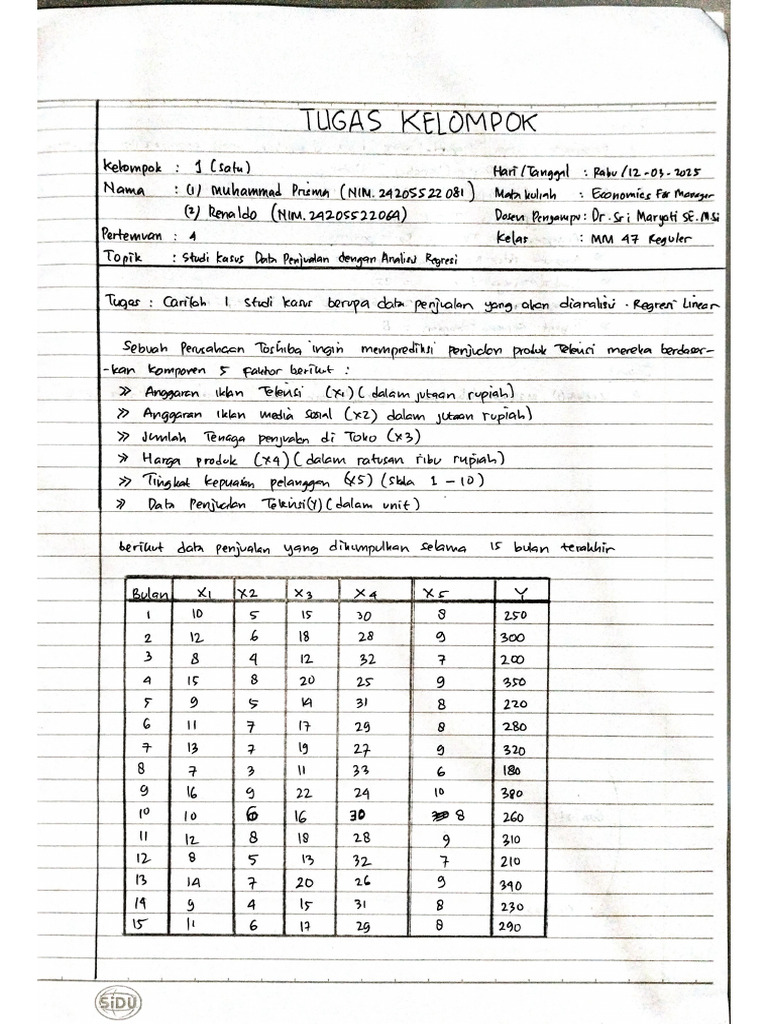 TUGAS KELOMPOK
Kelompok : 1 (satu) Hari/Tanggal : Rabu/12-03-2025
Nama : (1) Muhammad Prisma (NIM. 24205522081) Mata kuliah : Economics For Manager
(2) Renaldo (NIM. 24205522064) Dosen Pengampu : Dr. Sri Maryati SE. M.Si
Pertemuan : 4 Kelas : MM 47 Reguler
Topik : Studi Kasus Data Penjualan dengan Analisis Regresi
Tugas : Carilah 1 studi kasus berupa data penjualan yang akan dianalisis . Regresi Linear
Sebuah Perusahaan Toshiba ingin memprediksi penjualan produk Televisi mereka berdasar-
-kan komponen 5 faktor berikut :
>> Anggaran iklan Televisi (X1) (dalam jutaan rupiah)
>> Anggaran iklan media sosial (X2) dalam jutaan rupiah)
>> Jumlah Tenaga penjualan di Toko (X3)
>> Harga produk (X4) (dalam ratusan ribu rupiah)
>> Tingkat kepuasan pelanggan (X5) (Skala 1 - 10)
>> Data Penjualan Televisi (Y) (dalam unit)
berikut data penjualan yang dikumpulkan selama 15 bulan terakhir
Bulan X1 X2 X3 X4 X5 Y
1 10 5 15 30 8 250
2 12 6 18 28 9 300
3 8 4 12 32 7 200
4 15 8 20 25 9 350
5 9 5 14 31 8 220
6 11 7 17 29 8 280
7 13 7 19 27 9 320
8 7 3 11 33 6 180
9 16 9 22 24 10 380
10 10 6 16 30 8 260
11 12 8 18 28 9 310
12 8 5 13 32 7 210
13 14 7 20 26 9 340
14 9 4 15 31 8 230
15 11 6 17 29 8 290
SiDU